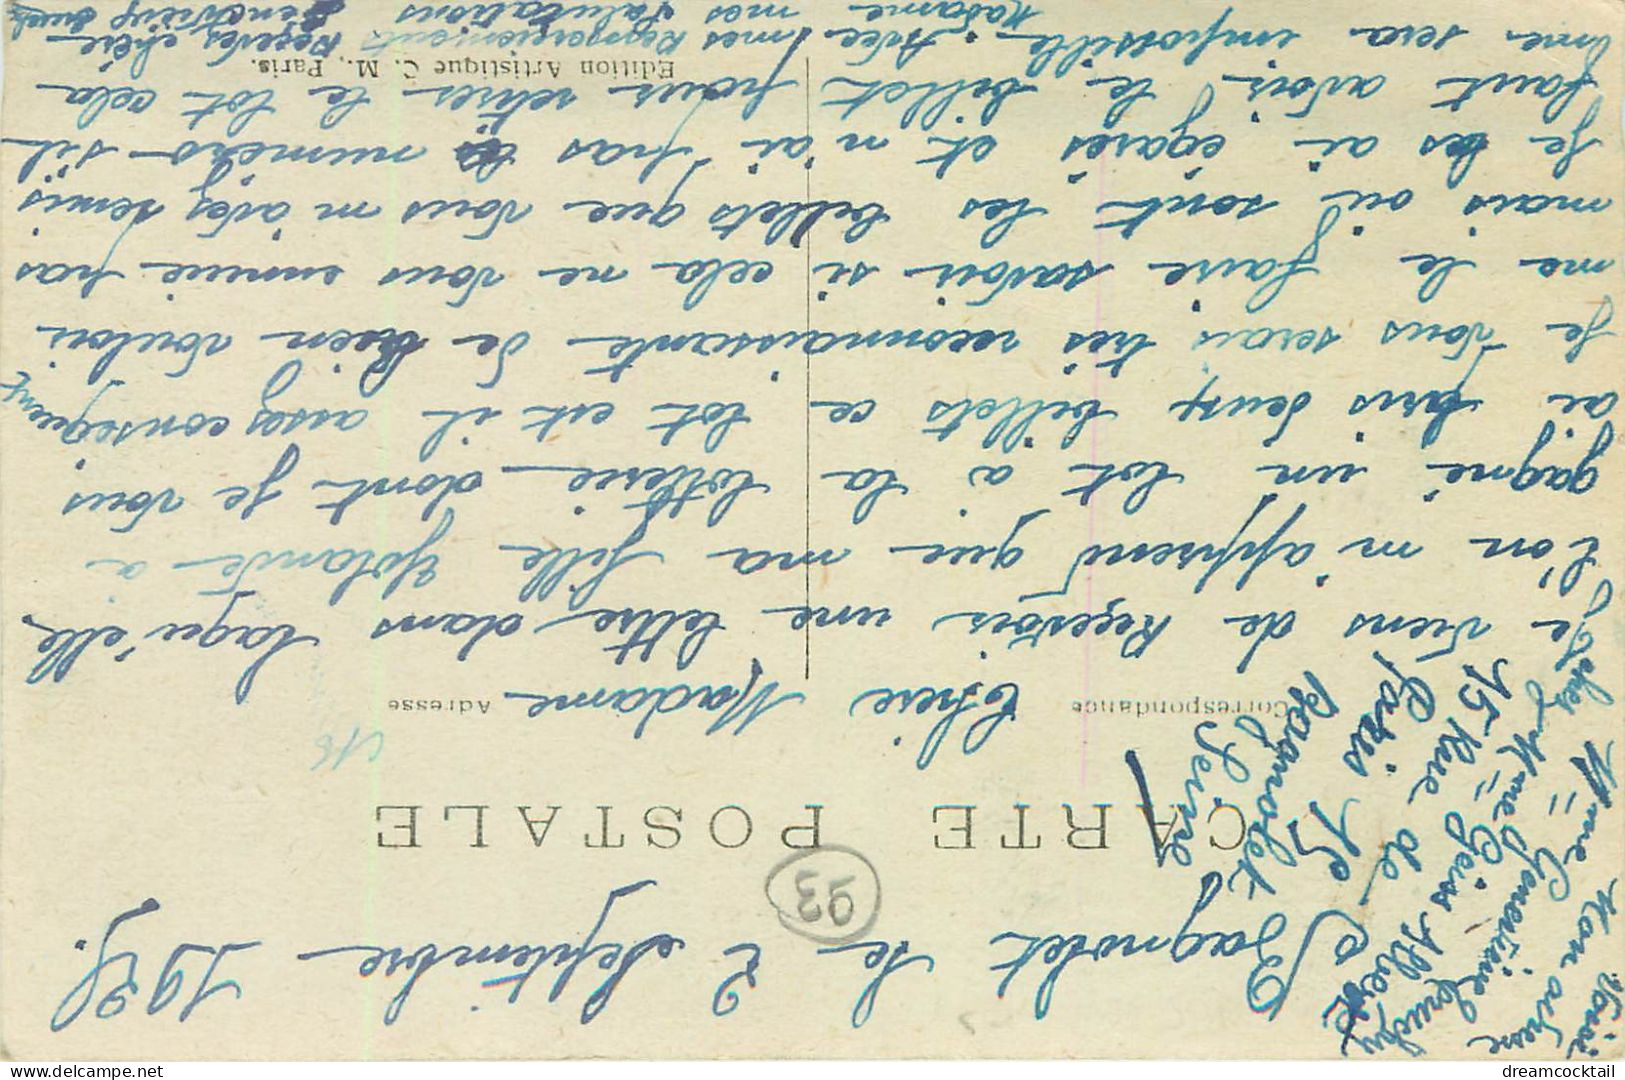 Bagnolet le 2 Septembre 1929.
93
CARTE POSTALE
Correspondance
Adresse
Chère Madame
Je viens de Reçevoir une lettre dans laqu'elle
l'on m'apprend que ma fille Yolande à
gagné un lot à la lotterie dont je vous
ai pris deux billets ce lot est il assez conséquent
Je vous serais très reconnaissante de bien vouloir
me le faire savoir si cela ne vous ennuie pas
mais où sont les billets que vous m'avez remis
Je les ai égarés et n'ai pas les numéro s'il
faut avoir le billet pour retirer le lot cela
me sera impossible. Avec mes Remerciements Recevez chère
Madame mes Salutations
Edition Artistique C. M., Paris.
Voici Mon adresse
Mme
chez Mme
15 Rue de
Paris 15
Bagnolet
Seine
dreamcocktail